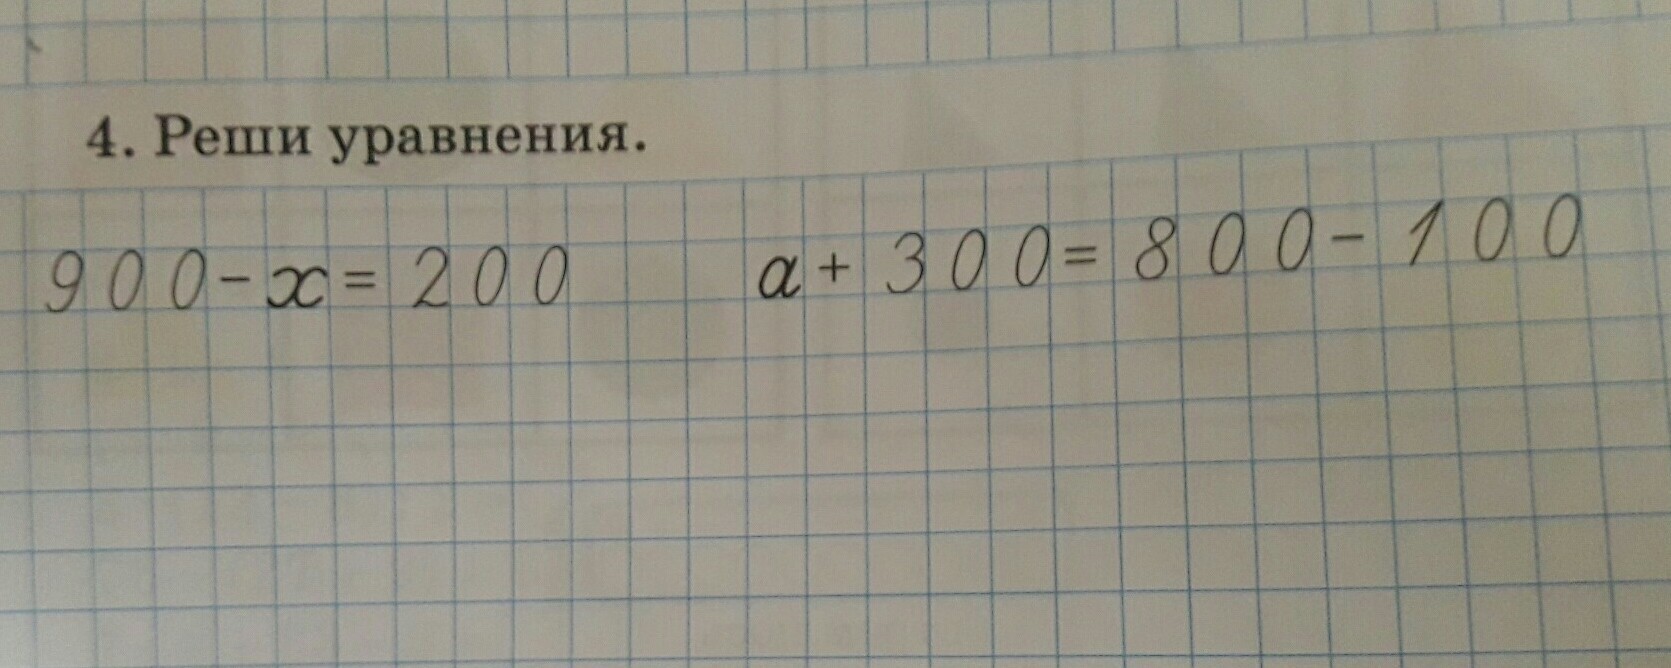 4. Реши уравнения.
900-x=200 a+300=800-100